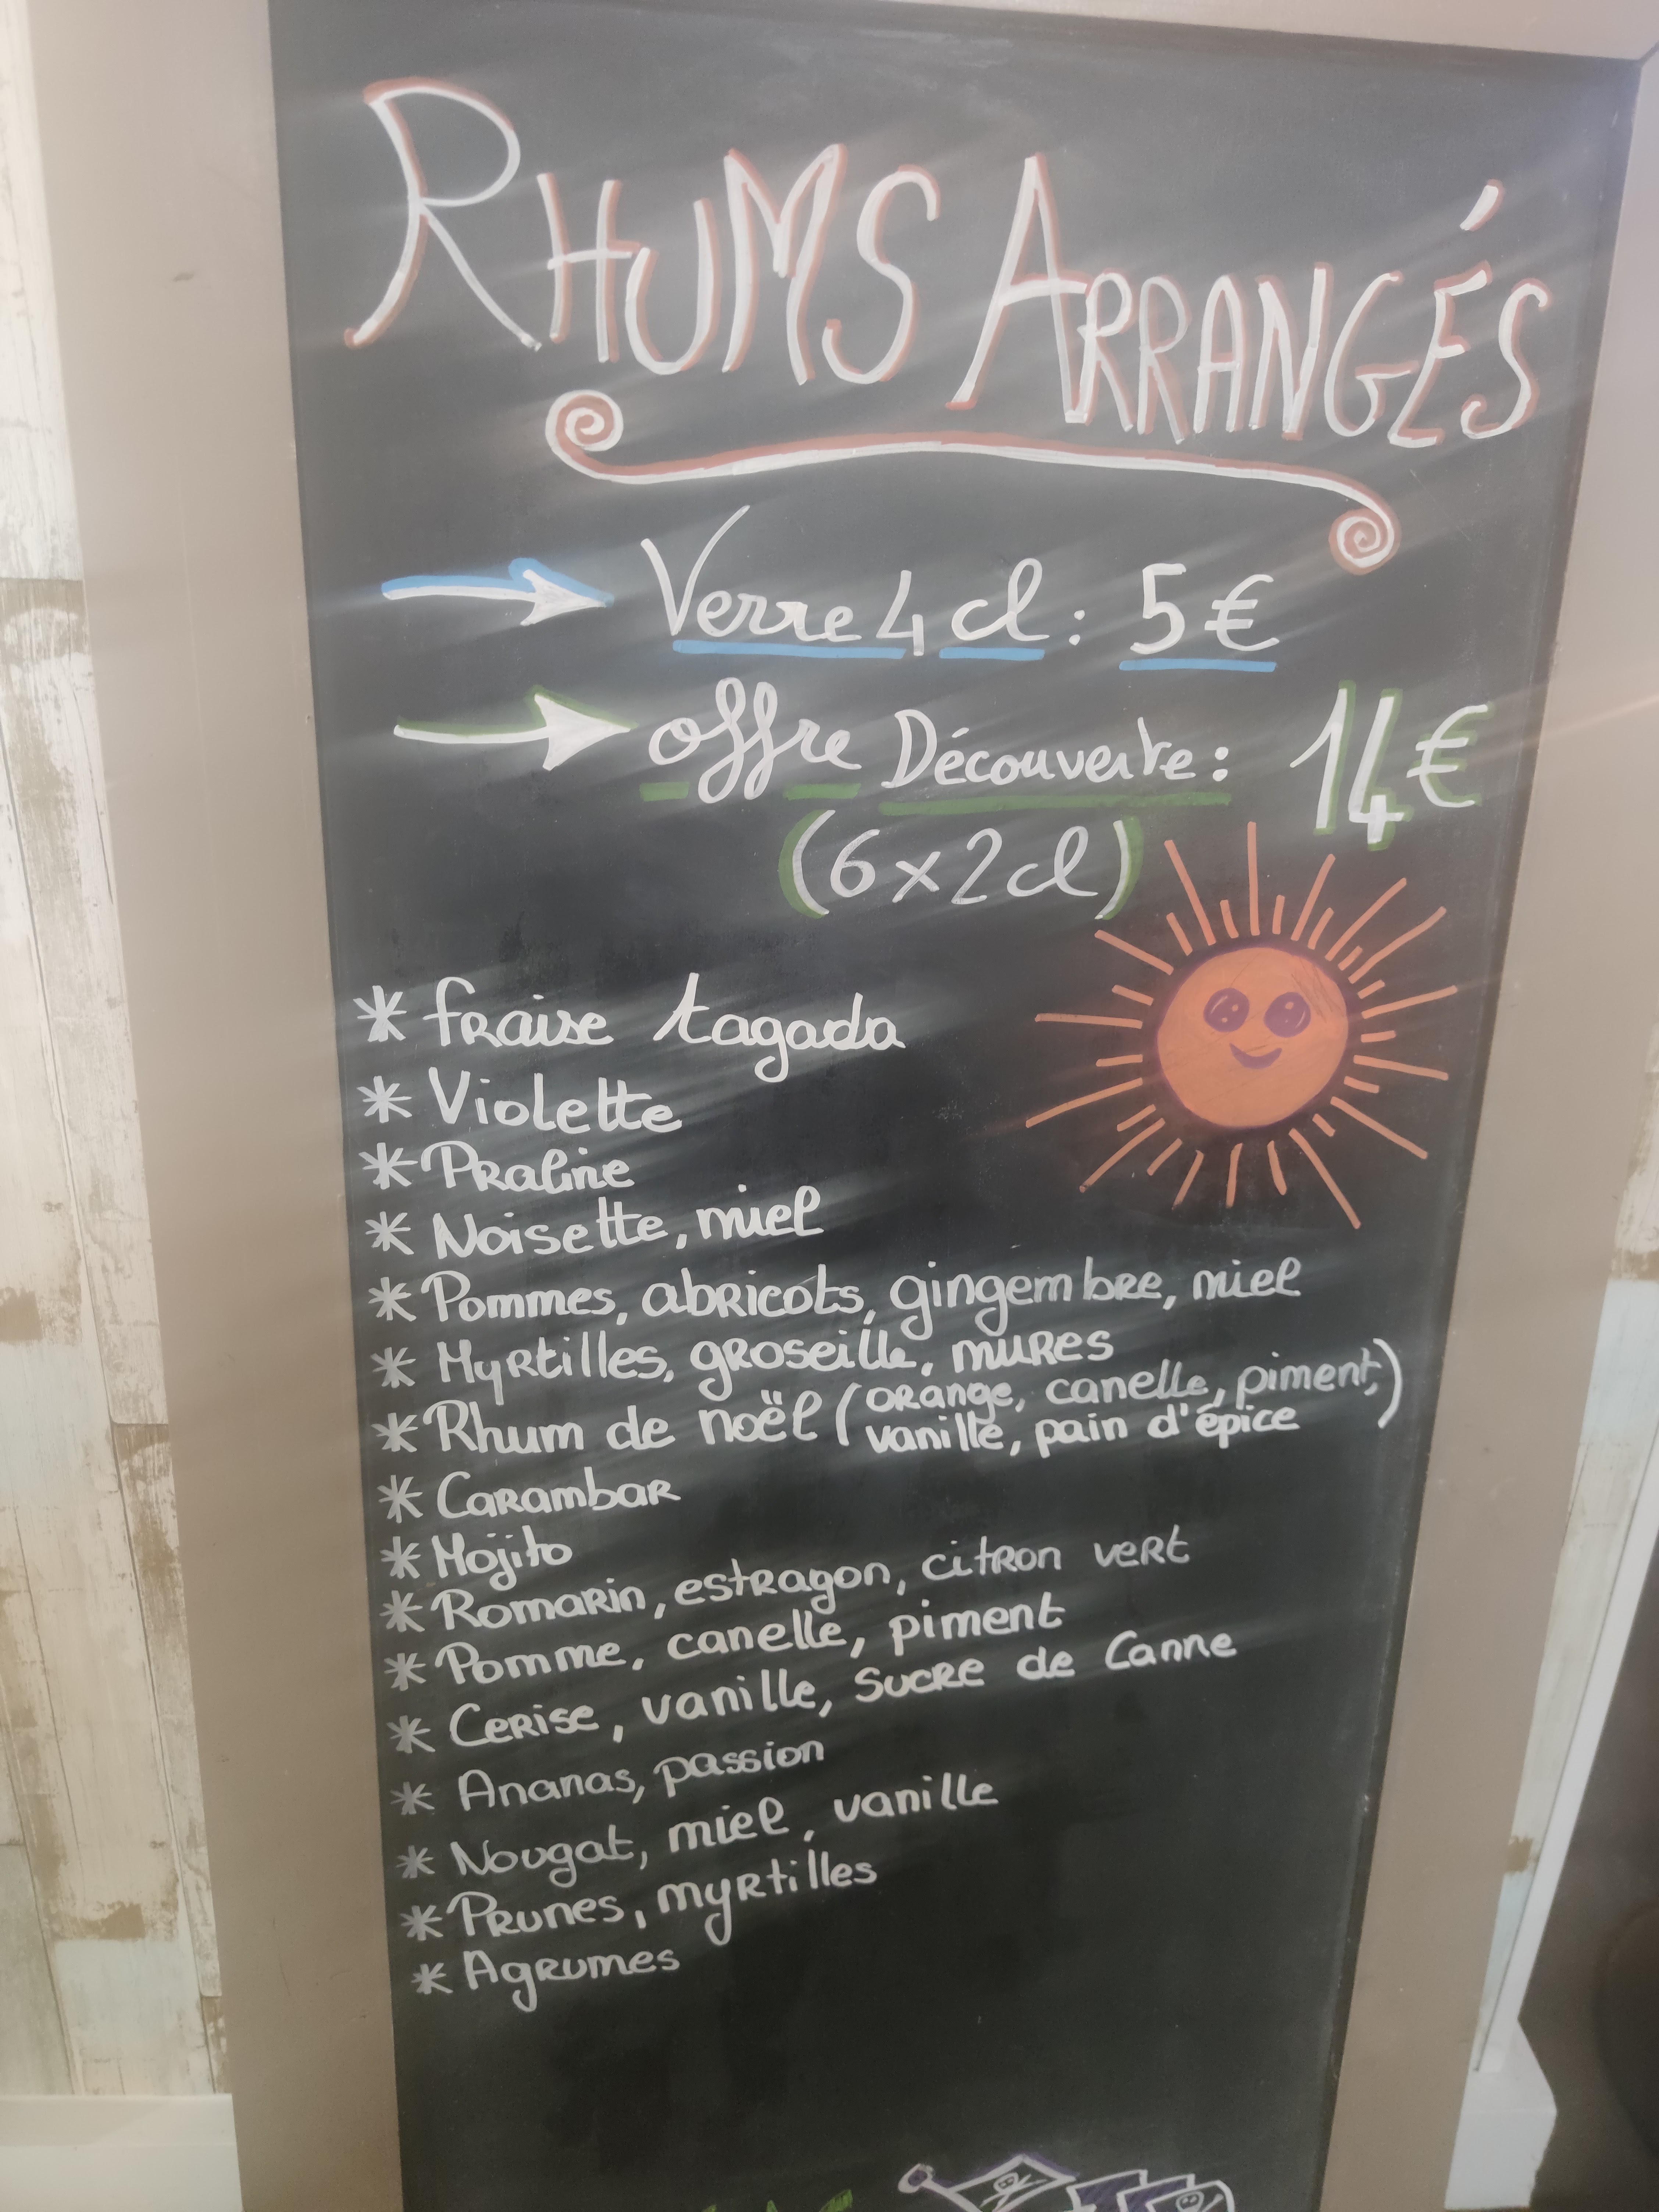 RHUMS ARRANGÉS
Verre 4 cl : 5 €
offre Découverte : 14 €
(6 x 2 cl)
* fraise tagada
* Violette
* Praline
* Noisette, miel
* Pommes, abricots, gingembre, miel
* Myrtilles, groseille, mures
* Rhum de noël (orange, canelle, piment,
vanille, pain d'épice)
* Carambar
* Mojito
* Romarin, estragon, citron vert
* Pomme, canelle, piment
* Cerise, vanille, sucre de Canne
* Ananas, passion
* Nougat, miel, vanille
* Prunes, myrtilles
* Agrumes